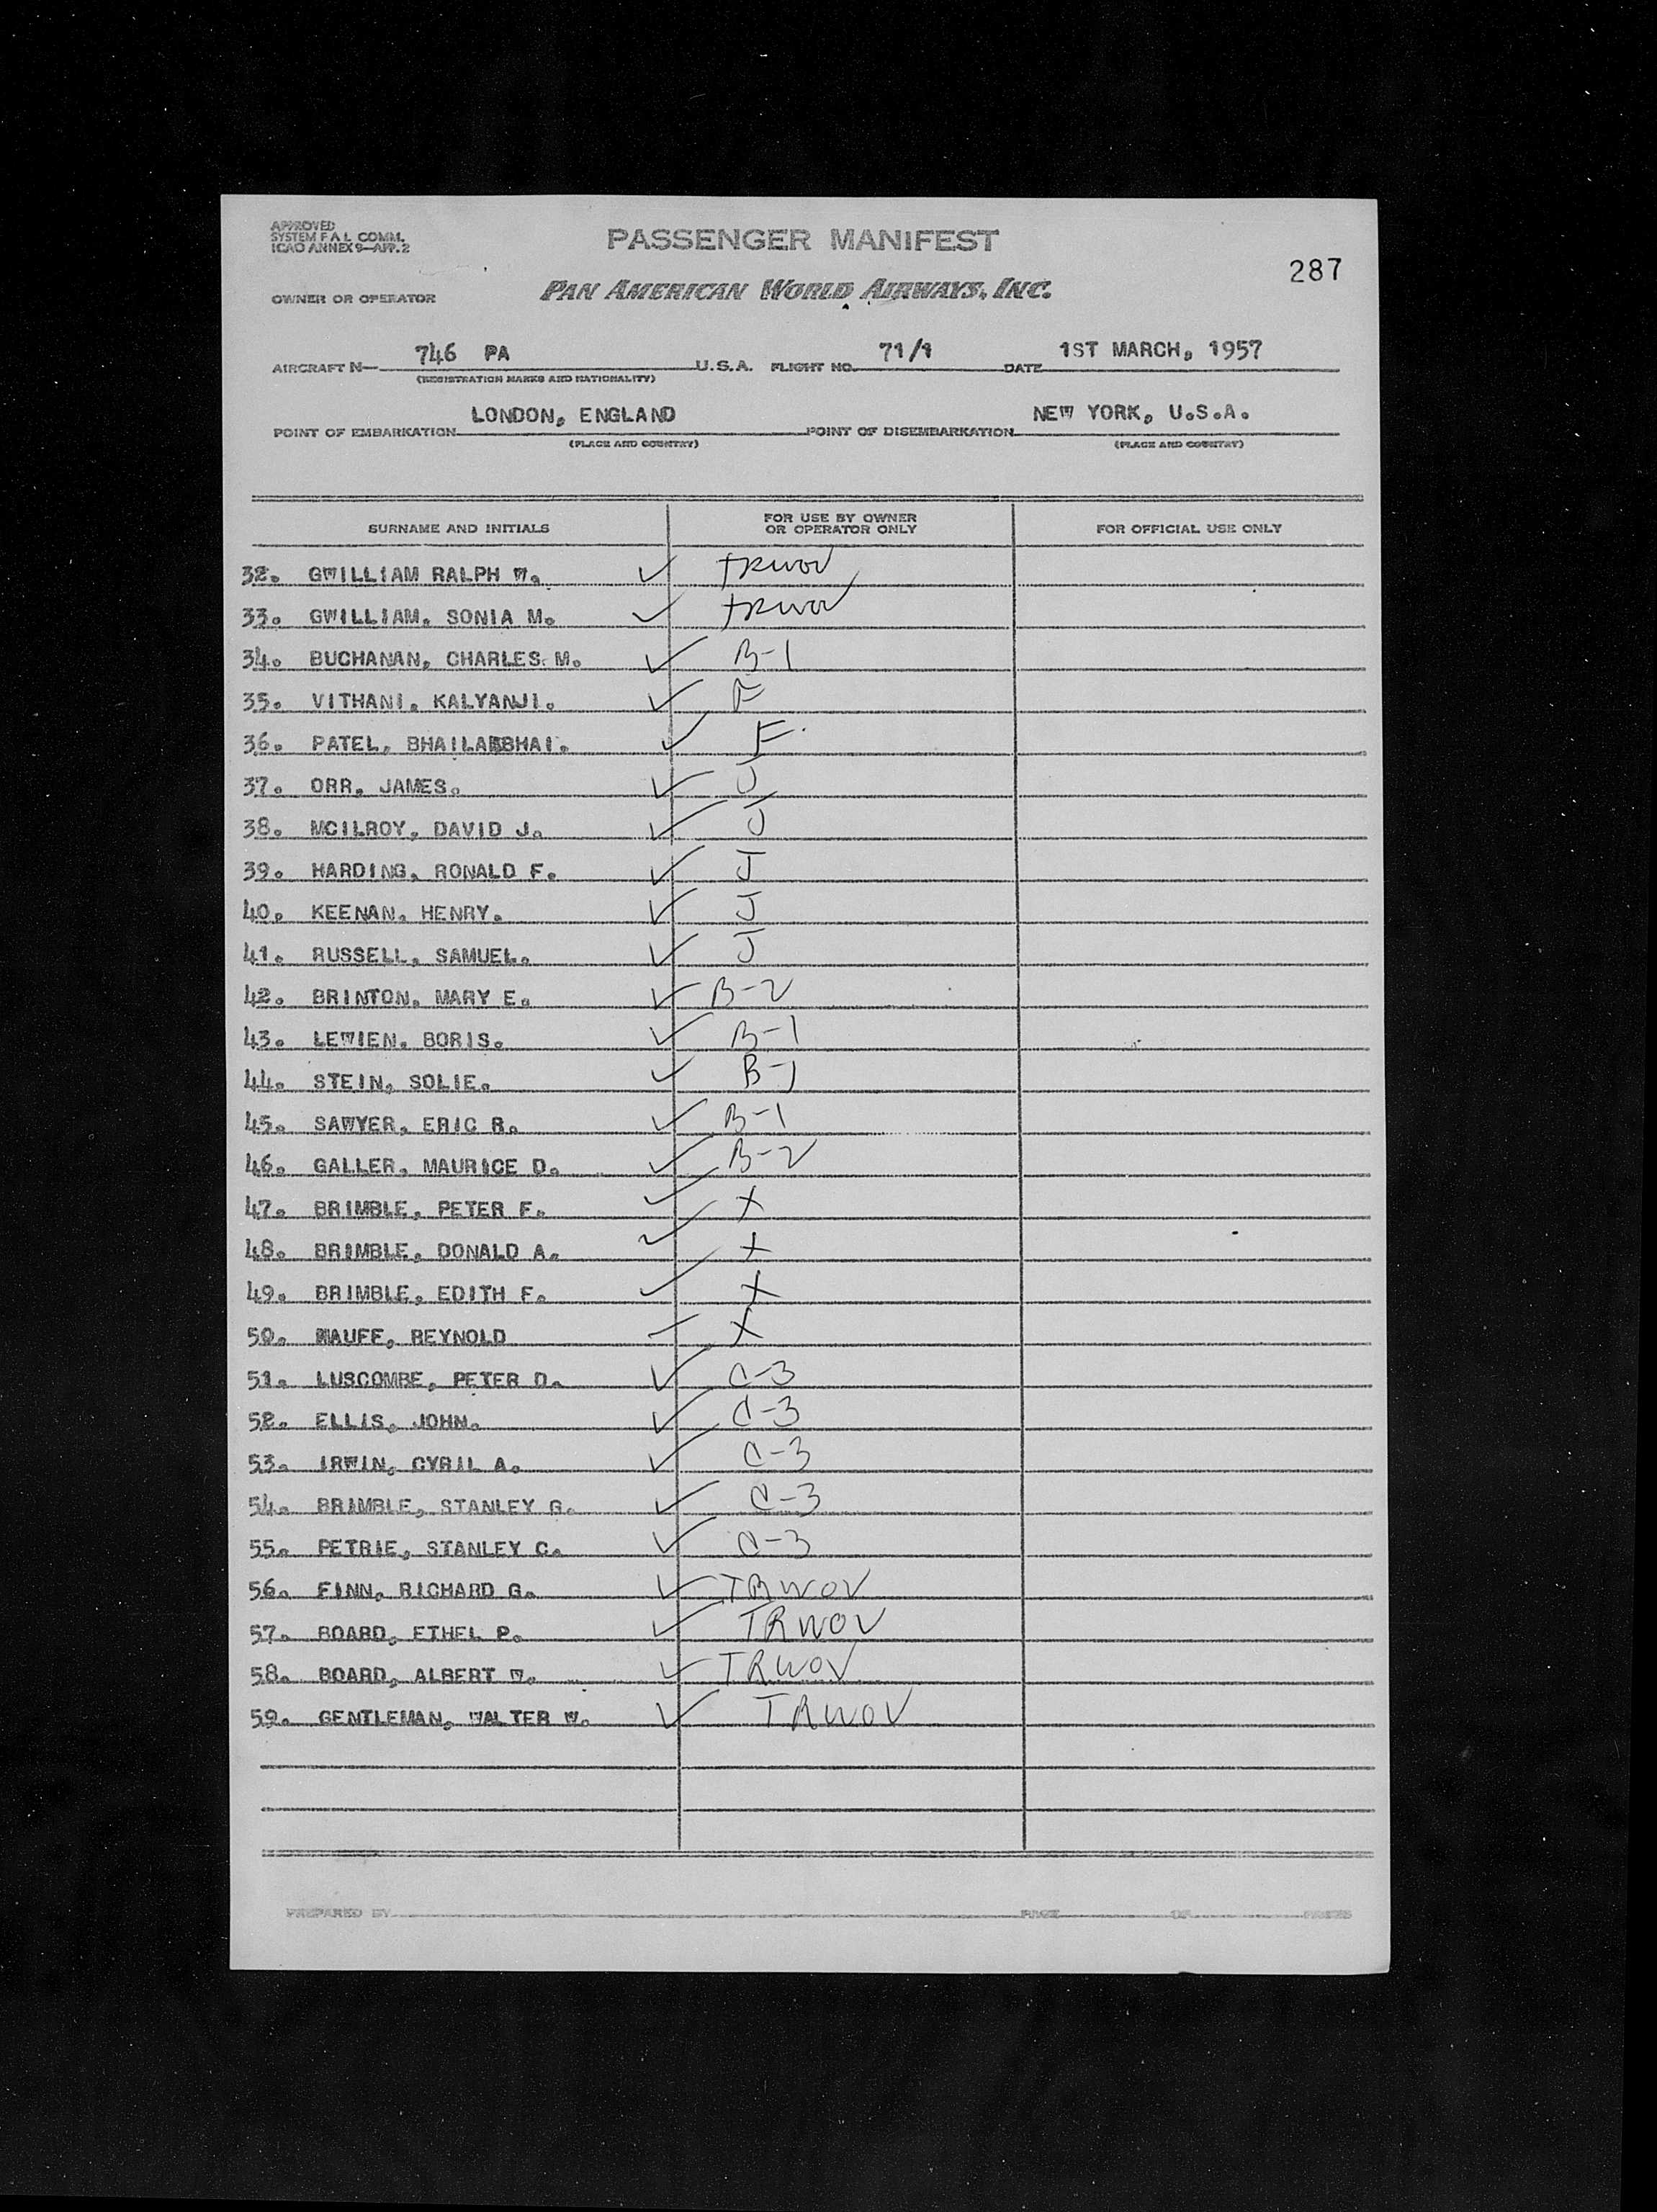 APPROVED
SYSTEM F A L COMM.
ICAO ANNEX 9—APP. 2
PASSENGER MANIFEST
287
OWNER OR OPERATOR PAN AMERICAN WORLD AIRWAYS, INC.
AIRCRAFT N— 746 PA U.S.A. FLIGHT NO. 71/1 DATE 1ST MARCH, 1957
(REGISTRATION MARKS AND NATIONALITY)
POINT OF EMBARKATION LONDON, ENGLAND POINT OF DISEMBARKATION NEW YORK, U.S.A.
(PLACE AND COUNTRY) (PLACE AND COUNTRY)
SURNAME AND INITIALS FOR USE BY OWNER OR OPERATOR ONLY FOR OFFICIAL USE ONLY
32. GWILLIAM RALPH W. ✓ TRWOV
33. GWILLIAM, SONIA M. ✓ TRWOV
34. BUCHANAN, CHARLES M. ✓ B-1
35. VITHANI, KALYANJI. ✓ F
36. PATEL, BHAILABBHAI. ✓ F.
37. ORR, JAMES. ✓ J
38. MCILROY, DAVID J. ✓ J
39. HARDING, RONALD F. ✓ J
40. KEENAN, HENRY. ✓ J
41. RUSSELL, SAMUEL. ✓ J
42. BRINTON, MARY E. ✓ B-2
43. LEWIEN, BORIS. ✓ B-1
44. STEIN, SOLIE. ✓ B-1
45. SAWYER, ERIC R. ✓ B-1
46. GALLER, MAURICE D. ✓ B-2
47. BRIMBLE, PETER F. ✓ X
48. BRIMBLE, DONALD A. ✓ X
49. BRIMBLE, EDITH F. ✓ X
50. MAUFE, REYNOLD — X
51. LUSCOMBE, PETER D. ✓ C-3
52. ELLIS, JOHN. ✓ C-3
53. IRWIN, CYRIL A. ✓ C-3
54. BRIMBLE, STANLEY G. ✓ C-3
55. PETRIE, STANLEY C. ✓ C-3
56. FINN, RICHARD G. ✓ TRWOV
57. BOARD, ETHEL P. ✓ TRWOV
58. BOARD, ALBERT W. ✓ TRWOV
59. GENTLEMAN, WALTER W. ✓ TRWOV
PREPARED BY PAGE OF PAGES